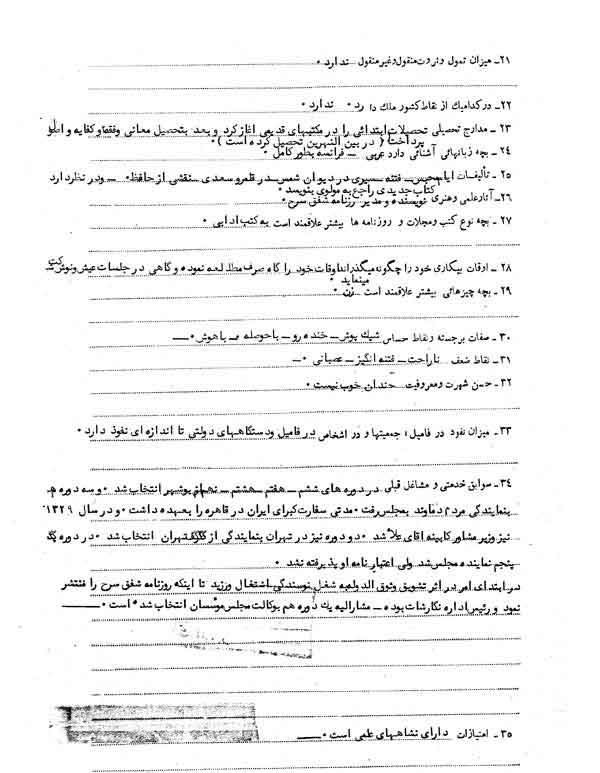 ۲۱ـ میزان تمول و ثروت منقول و غیر منقول ندارد ۰
۲۲ ـ در کدامیك از نقاط کشور ملك دارد ۰ ندارد ۰
۲۳ ـ مدارج تحصیلی تحصیلات ابتدائی را در مکتبهای قدیمی اغاز کرد و بعد بتحصیل معانی وفقه و کفایه و اصول
پرداخت ( در بین النهرین تحصیل کرده است ) ۰
۲۴ ـ بچه زبانهائی آشنائی دارد عربی ـ فرانسه بطور کامل ۰
۲۵ ـ تألیفات ایام محبس ـ فتنه ـ سیری در دیوان شمس ـ در قلمرو سعدی ـ نقشی از حافظ ۰ ـ و در نظر دارد
کتاب جدیدی راجع به مولوی بنویسد ۰
۲۶ـ آثار علمی و هنری نویسنده و مدیر روزنامه شفق سرخ ۰
۲۷ ـ بچه نوع کتب و مجلات و روزنامه ها بیشتر علاقمند است به کتب ادبی ۰
۲۸ ـ اوقات بیکاری خود را چگونه میگذراند اوقات خود را گاه صرف مطالعه نموده و گاهی در جلسات عیش و نوش شرکت
مینماید ۰
۲۹ ـ بچه چیزهائی بیشتر علاقمند است زن ۰
۳۰ ـ صفات برجسته و نقاط حساس شیك پوش ـ خنده رو ـ با حوصله و با هوش ۰
۳۱ ـ نقاط ضعف ناراحت ـ فتنه انگیز ـ عصبانی ۰
۳۲ ـ حسن شهرت و معروفیت چندان خوب نیست ۰
۳۳ ـ میزان نفوذ در فامیل ؛ جمعیتها و در اشخاص در فامیل و دستگاههای دولتی تا اندازه ای نفوذ دارد ۰
۳۴ ـ سوابق خدمتی و مشاغل قبلی در دوره های ششم ـ هفتم ـ هشتم ـ نهم از بوشهر انتخاب شد ۰ و سه دوره هم
بنمایندگی مردم دماوند بمجلس رفت ۰ مدتی سفارت کبرای ایران در قاهره را بعهده داشت ۰ و در سال ۱۳۲۹
نیز وزیر مشاور کابینه اقای علا شد ۰ دو دوره نیز در تهران بنمایندگی از تهران انتخاب شد ۰ در دوره
پنجم نماینده مجلس شد ولی اعتبارنامه او پذیرفته نشد ۰
در ابتدای امر در اثر تشویق وثوق الدوله به شغل نویسندگی اشتغال ورزید تا اینکه روزنامه شفق سرخ را منتشر
نمود و رئیس اداره نگارشات بوده ـ مشارالیه یك دوره هم بوکالت مجلس مؤسسان انتخاب شده است ۰
۳۵ ـ امتیازات دارای نشاههای علمی است ۰